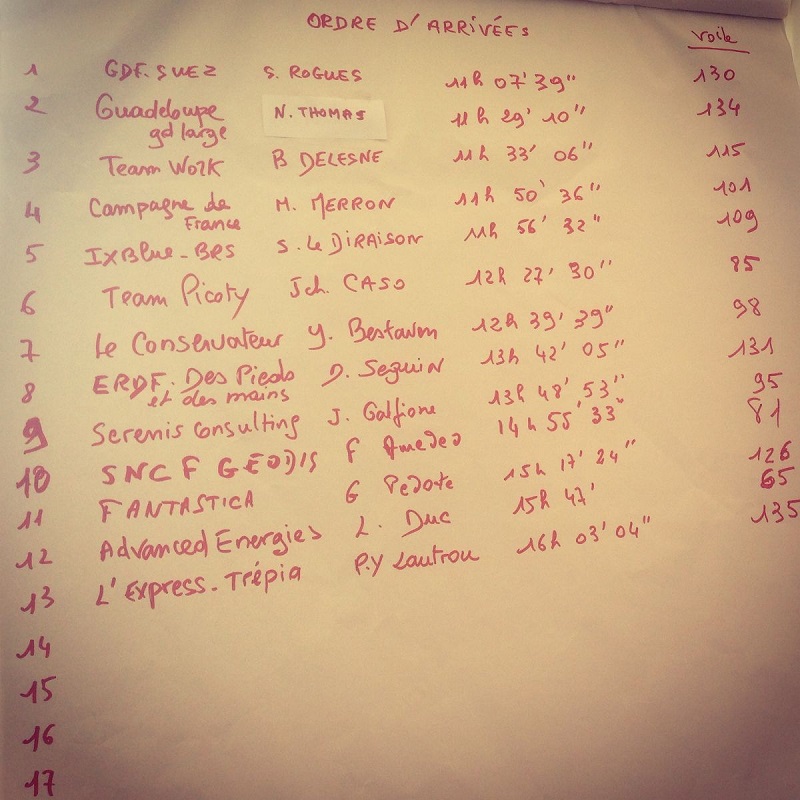 ORDRE D'ARRIVÉES voile
1 GDF. SUEZ S. ROGUES 11h 07'39" 130
2 Guadeloupe N. THOMAS 11h 29' 10" 134
gd large
3 Team Work B DELESNE 11h 33' 06" 115
4 Campagne de M. MERRON 11h 50' 36" 101
France
5 IXBlue - BRS S. Le DIRAISON 11h 56' 32" 109
6 Team Picoty Jch. CASO 12h 27' 30" 85
7 Le Conservateur Y. Bestaven 12h 39' 39" 98
8 ERDF. Des Pieds D. Seguin 13h 42' 05" 131
et des mains
9 Serenis Consulting J. Galfione 13h 48' 53" 95
10 SNCF GEODIS F Amedeo 14h 55' 33" 81
11 FANTASTICA G Pedote 15h 17' 24" 126
12 Advanced Energies L. Duc 15h 47' 65
13 L'Express - Trépia P.Y Lautrou 16h 03' 04" 135
14
15
16
17